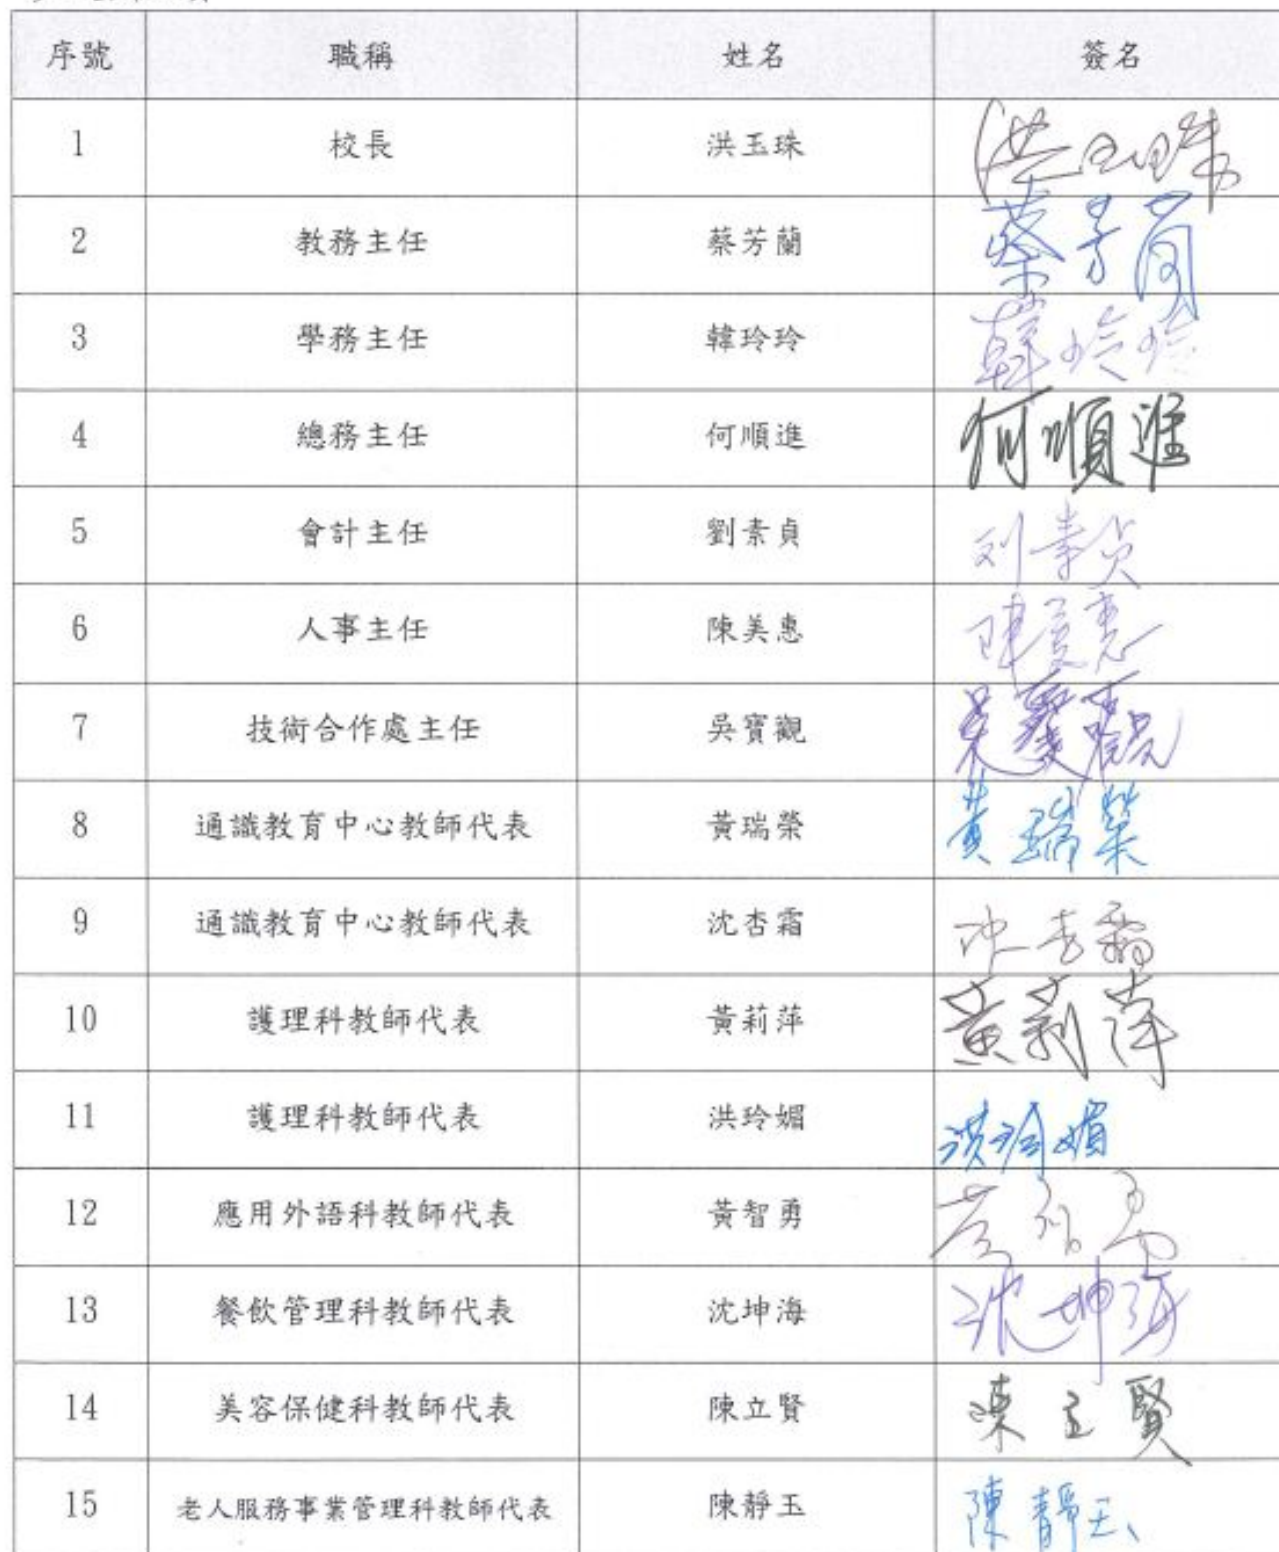 序號 職稱 姓名 簽名
1 校長 洪玉珠 洪玉珠
2 教務主任 蔡芳蘭 蔡芳蘭
3 學務主任 韓玲玲 韓玲玲
4 總務主任 何順進 何順進
5 會計主任 劉素貞 刘素貞
6 人事主任 陳美惠 陳美惠
7 技術合作處主任 吳寶觀 吳寶觀
8 通識教育中心教師代表 黃瑞榮 黃瑞榮
9 通識教育中心教師代表 沈杏霜 沈杏霜
10 護理科教師代表 黃莉萍 黃莉萍
11 護理科教師代表 洪玲媚 洪玲媚
12 應用外語科教師代表 黃智勇 黃智勇
13 餐飲管理科教師代表 沈坤海 沈坤海
14 美容保健科教師代表 陳立賢 陳立賢
15 老人服務事業管理科教師代表 陳靜玉 陳靜玉